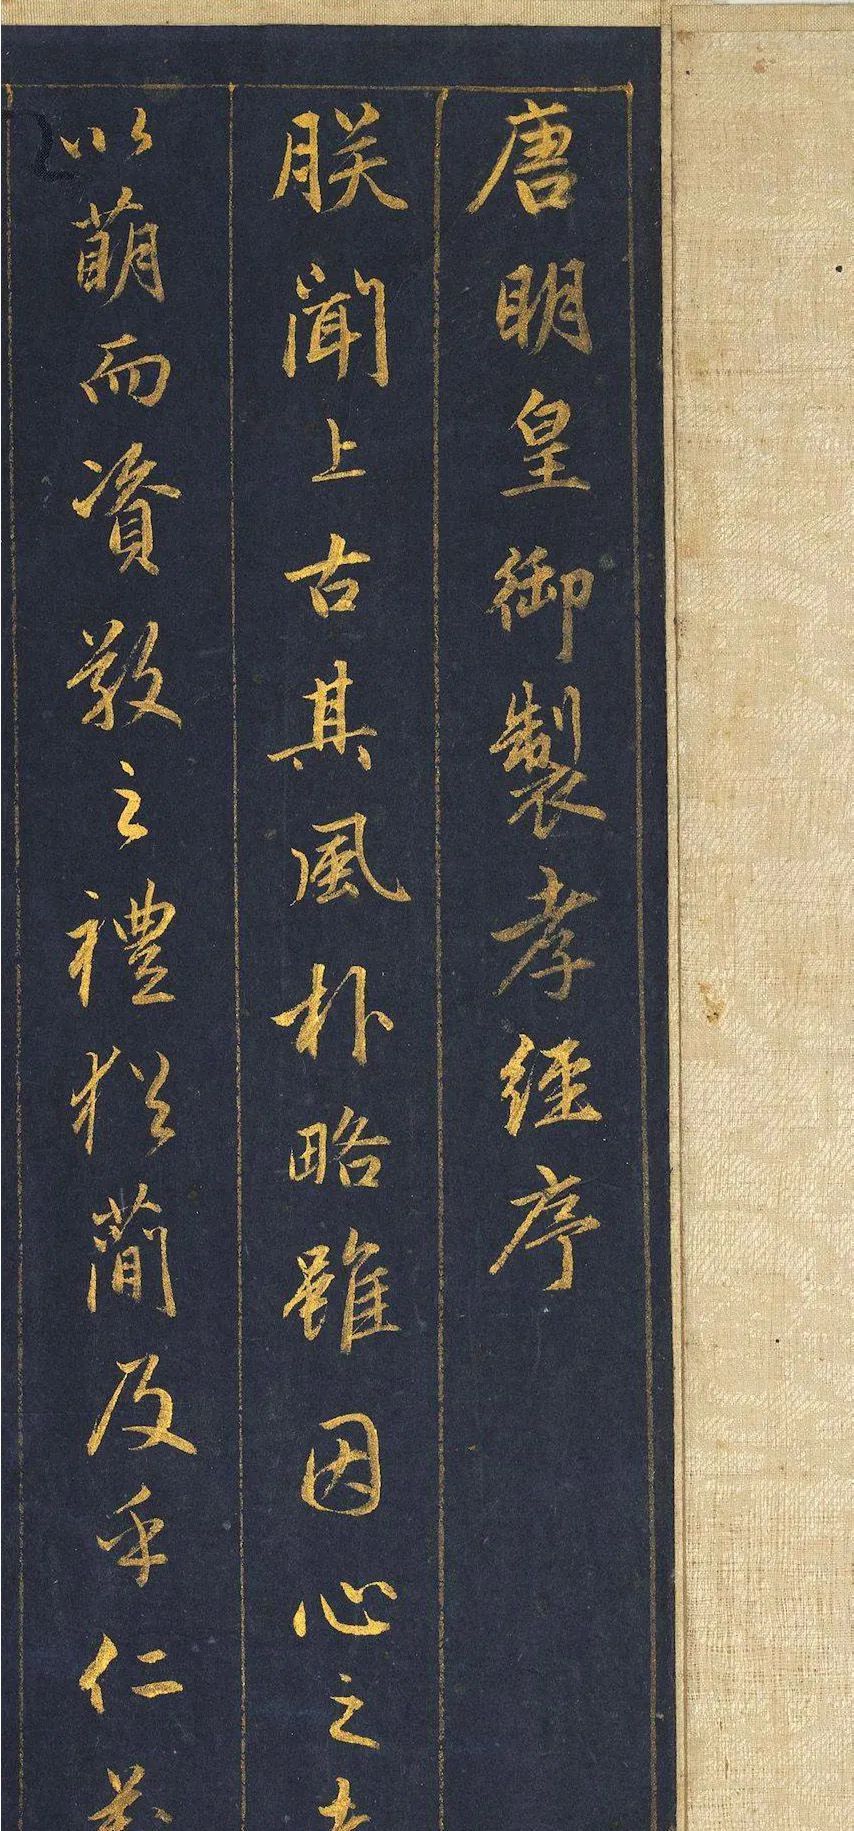 唐明皇御製孝經序
朕聞上古其風朴略雖因心之
以萌而資敬之禮猶蕳及乎仁